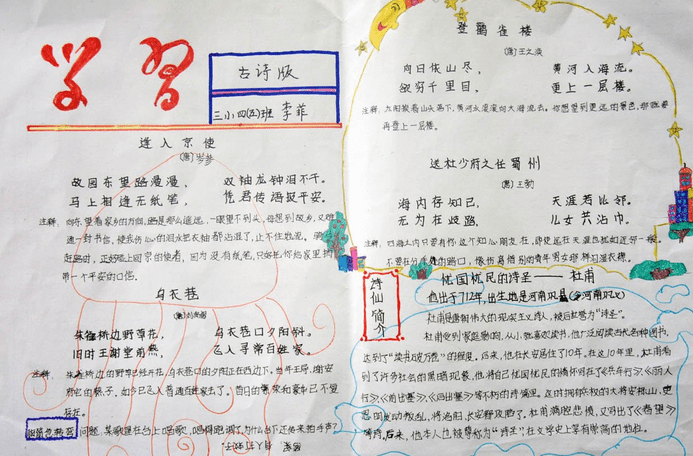 学习
古诗版
三小四(五)班 李菲
逢入京使
(唐)岑参
故园东望路漫漫, 双袖龙钟泪不干。
马上相逢无纸笔, 凭君传语报平安。
注释: 向东望着家乡的方向,路是那么遥远,一眼望不到头,每想到故乡,又难
逢一封书信,使我伤心的泪水把衣袖都沾湿了,止不住地流。
赶路时,正好碰上回京的使者,因为没有纸笔,只好把你给家里捎
带一个平安的口信。
乌衣巷
(唐)刘禹锡
朱雀桥边野草花, 乌衣巷口夕阳斜。
旧时王谢堂前燕, 飞入寻常百姓家。
注释: 朱雀桥边的野草已经开花,乌衣巷口的夕阳正在西边下。当年王导、谢安
府里的燕子。如今已飞入普通百姓家去了。昔日的繁荣和豪华已不复
存在。
脑筋急转弯 问题: 某歌星在台上唱歌,唱得跑调了,为什么台下还传来拍手声?
登鹳雀楼
(唐)王之涣
向日依山尽, 黄河入海流。
欲穷千里目, 更上一层楼。
注释: 太阳挨着山头落下,黄河水滚滚向大海流去。你想望到更远的景色,那就要
再登上一层楼。
送杜少府之任蜀州
(唐)王勃
海内存知己, 天涯若比邻。
无为在歧路, 儿女共沾巾。
注释: 四海之内只要有你这个知心朋友在,即使远在天涯也就如近邻一般。
不要在分手的路口,像伤离惜别的青年男女那样泪湿衣襟。
诗仙简介
忧国忧民的诗圣——杜甫
他出于712年,出生地是河南巩县(今河南巩义)
杜甫是唐朝伟大的现实主义诗人,被后世誉为"诗圣"。
杜甫受到家庭影响,从小就喜欢读书,他广泛阅读各种图书,
达到了"读书破万卷"的程度。后来,他在长安居住了10年。在这10年里,杜甫看
到了许多社会的黑暗现象,他将自己忧国忧民的情怀写在了<兵车行>><<丽人
行>><<前出塞>><<后出塞>>等不朽的诗篇里。
后来,他本人也被尊称为"诗圣",在文学史上享有崇高的地位。